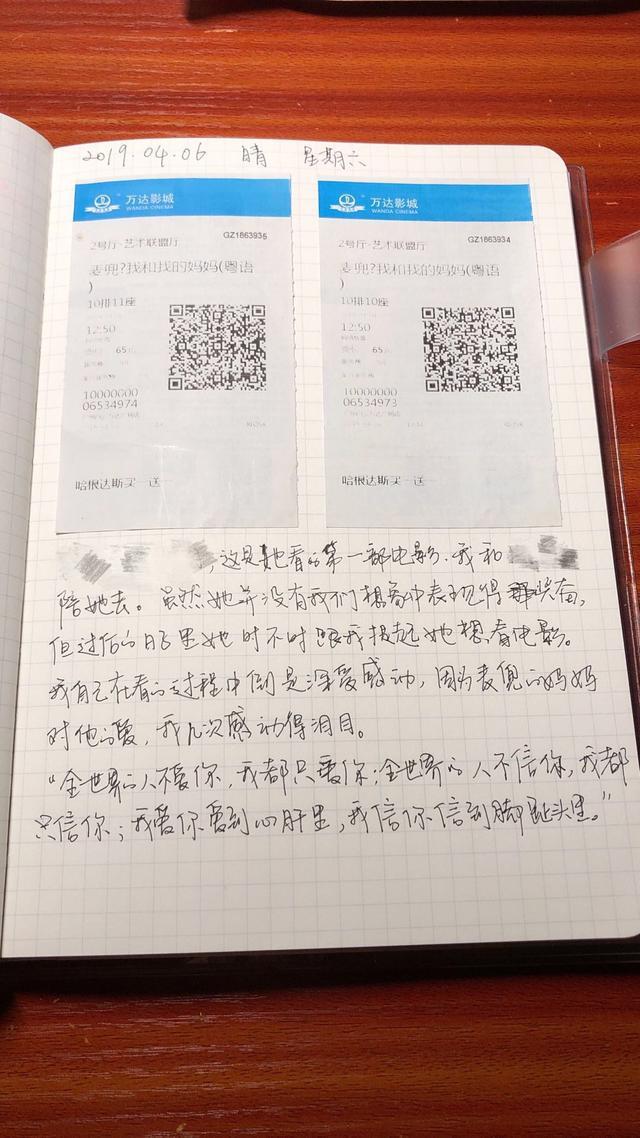 2019.04.06 晴 星期六
万达影城
WANDA CINEMA
2号厅-艺术联盟厅
GZ1863935
麦兜?我和我的妈妈(粤语
)
10排11座
12:50
65
10000000
06534974
哈根达斯买一送一
万达影城
WANDA CINEMA
2号厅-艺术联盟厅
GZ1863934
麦兜?我和我的妈妈(粤语
)
10排10座
12:50
65
10000000
06534973
哈根达斯买一送一
,这是她看的第一部电影.我和
陪她去。虽然她并没有我们想象中表现得兴奋,
但过后的日子里她时不时跟我提起她想看电影。
我自己在看的过程中倒是深受感动,因为麦兜的妈妈
对他的爱,我几次感动得泪目。
“全世界的人不爱你,我都只爱你;全世界的人不信你,我都
只信你;我爱你爱到心肝里,我信你信到脚趾头里。”